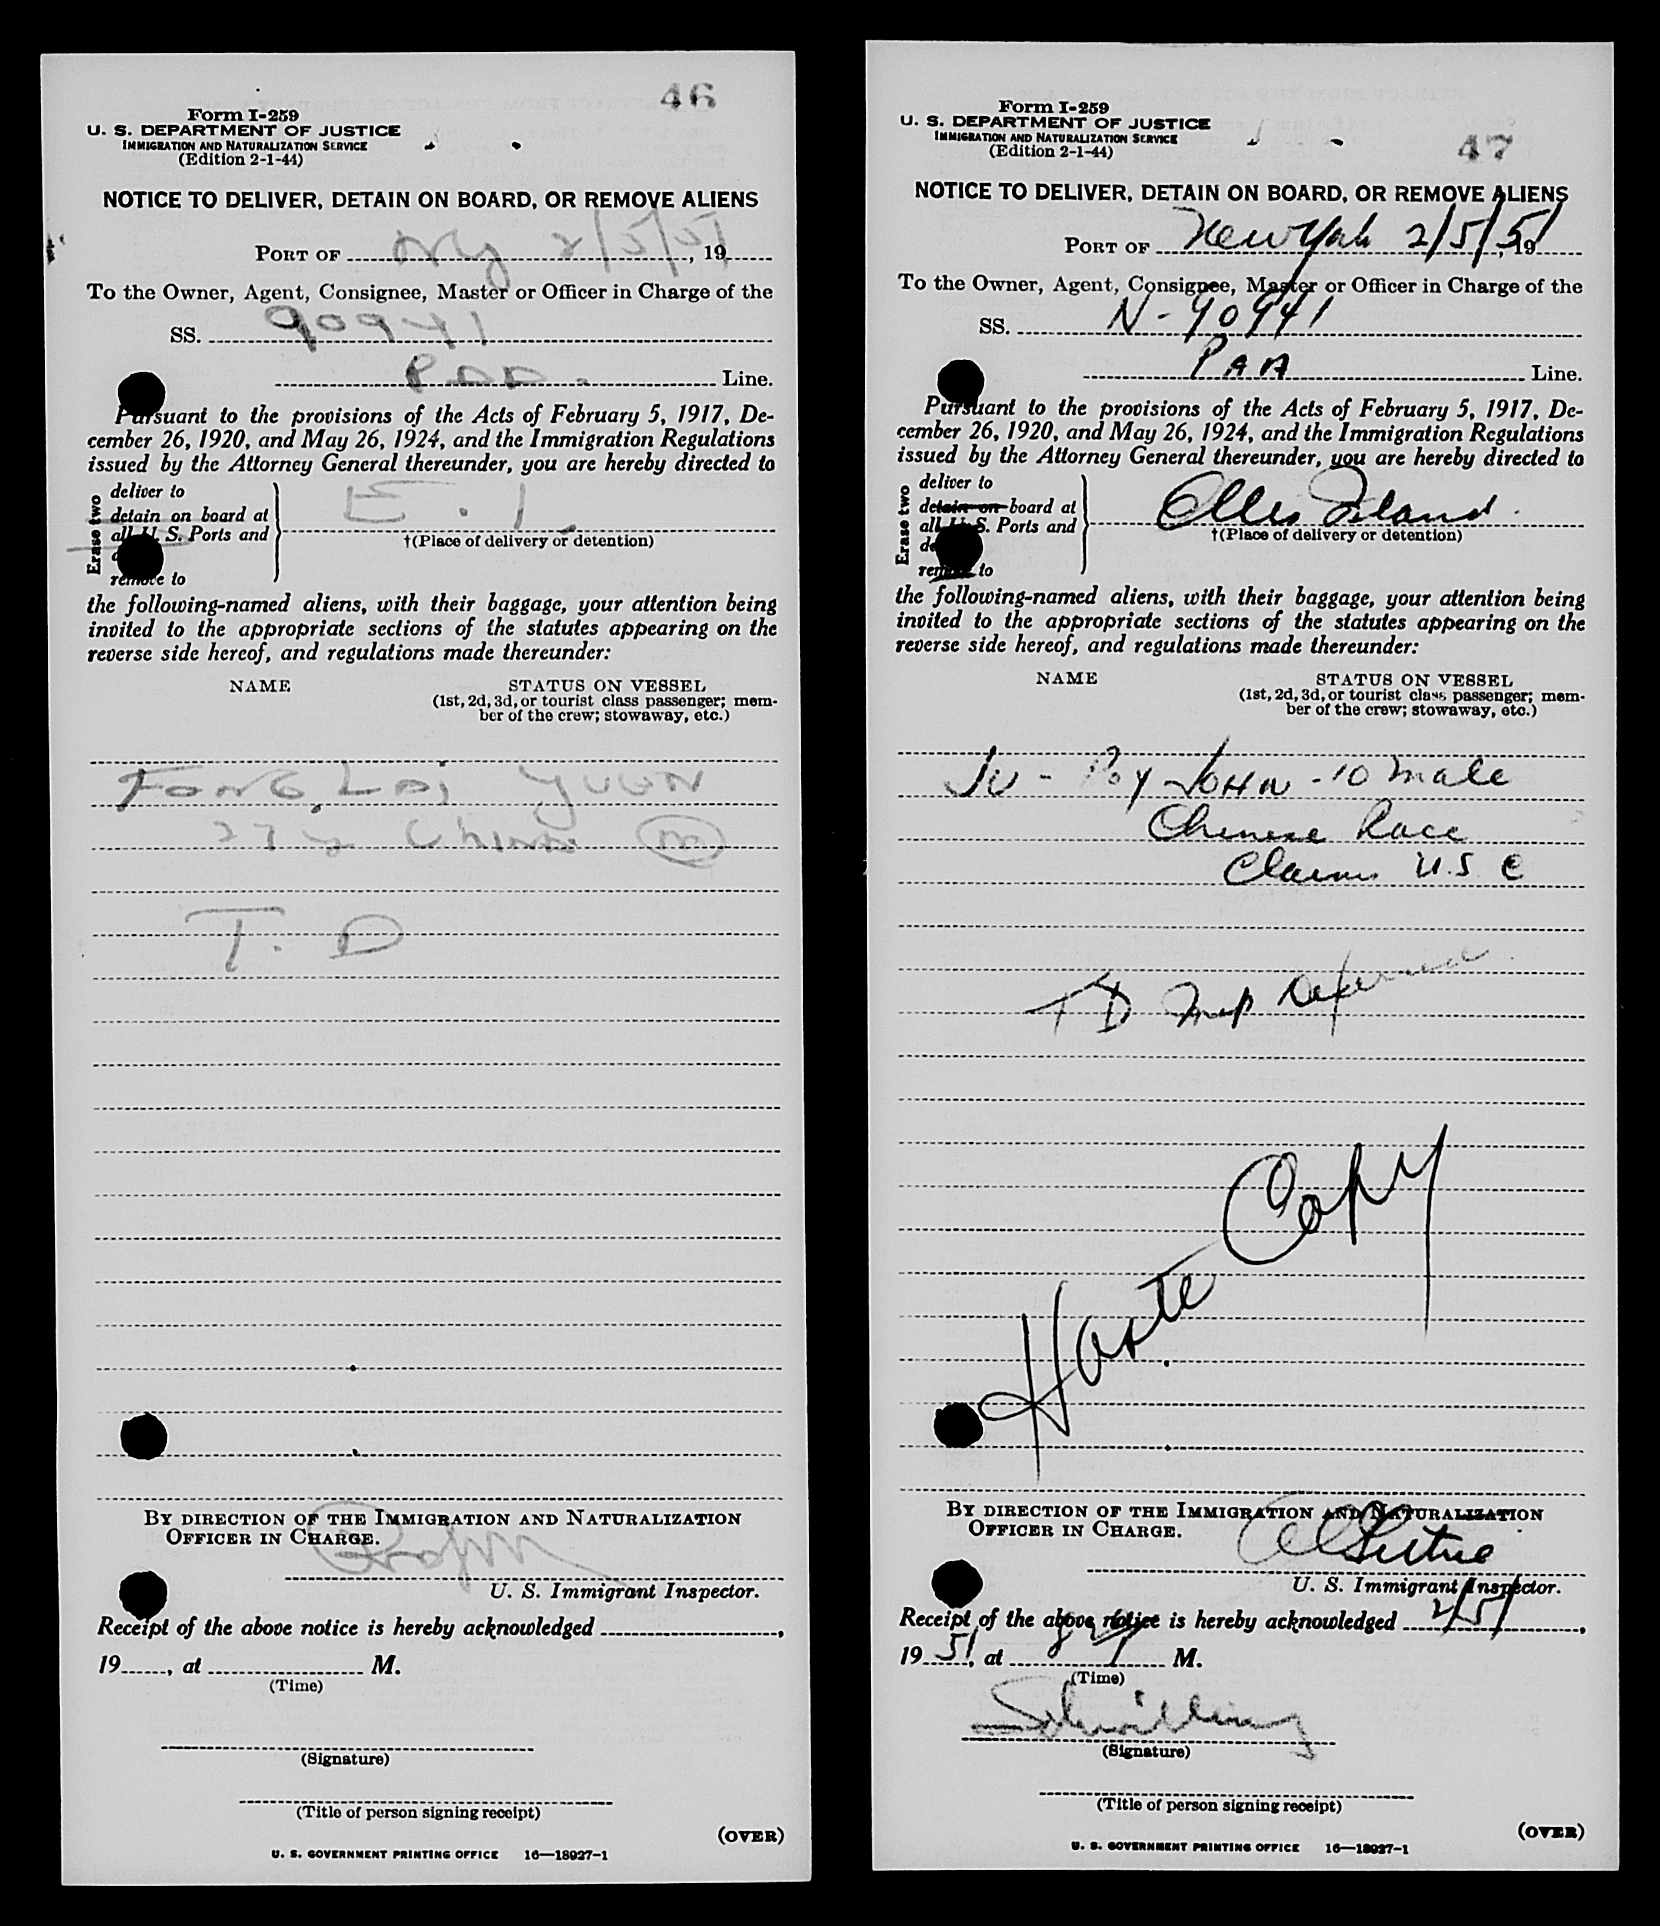 46
Form I-259
U. S. DEPARTMENT OF JUSTICE
IMMIGRATION AND NATURALIZATION SERVICE
(Edition 2-1-44)
NOTICE TO DELIVER, DETAIN ON BOARD, OR REMOVE ALIENS
PORT OF NY 2/5/51, 19
To the Owner, Agent, Consignee, Master or Officer in Charge of the
SS. 90941
PAA Line.
Pursuant to the provisions of the Acts of February 5, 1917, De-
cember 26, 1920, and May 26, 1924, and the Immigration Regulations
issued by the Attorney General thereunder, you are hereby directed to
Erase two
deliver to
detain on board at
all U. S. Ports and
remove to
E. I.
†(Place of delivery or detention)
the following-named aliens, with their baggage, your attention being
invited to the appropriate sections of the statutes appearing on the
reverse side hereof, and regulations made thereunder:
NAME STATUS ON VESSEL
(1st, 2d, 3d, or tourist class passenger; mem-
ber of the crew; stowaway, etc.)
FONG, LAI YUEN
27 y China M
T. D
BY DIRECTION OF THE IMMIGRATION AND NATURALIZATION
OFFICER IN CHARGE.
U. S. Immigrant Inspector.
Receipt of the above notice is hereby acknowledged ,
19 , at M.
(Time)
(Signature)
(Title of person signing receipt)
(OVER)
U. S. GOVERNMENT PRINTING OFFICE 16—18927-1
Form I-259
U. S. DEPARTMENT OF JUSTICE
IMMIGRATION AND NATURALIZATION SERVICE
(Edition 2-1-44)
47
NOTICE TO DELIVER, DETAIN ON BOARD, OR REMOVE ALIENS
PORT OF New York 2/5/51, 19
To the Owner, Agent, Consignee, Master or Officer in Charge of the
SS. N-90941
PAA Line.
Pursuant to the provisions of the Acts of February 5, 1917, De-
cember 26, 1920, and May 26, 1924, and the Immigration Regulations
issued by the Attorney General thereunder, you are hereby directed to
Erase two
deliver to
detain on board at
all U. S. Ports and
remove to
Ellis Island.
†(Place of delivery or detention)
the following-named aliens, with their baggage, your attention being
invited to the appropriate sections of the statutes appearing on the
reverse side hereof, and regulations made thereunder:
NAME STATUS ON VESSEL
(1st, 2d, 3d, or tourist class passenger; mem-
ber of the crew; stowaway, etc.)
JU - Poy JOHN - 10 male
Chinese Race
Claims U.S C
TD Insp Deferred
Haste Copy
BY DIRECTION OF THE IMMIGRATION AND NATURALIZATION
OFFICER IN CHARGE.
U. S. Immigrant Inspector.
Receipt of the above notice is hereby acknowledged 2/5/,
19 51, at M.
(Time)
Schilling
(Signature)
(Title of person signing receipt)
(OVER)
U. S. GOVERNMENT PRINTING OFFICE 16—18927-1